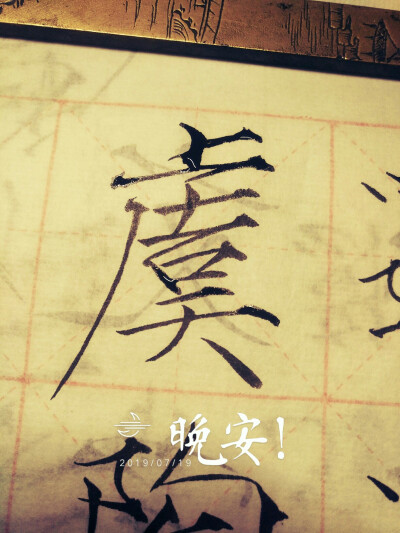 虞
晚安!
2019/07/19